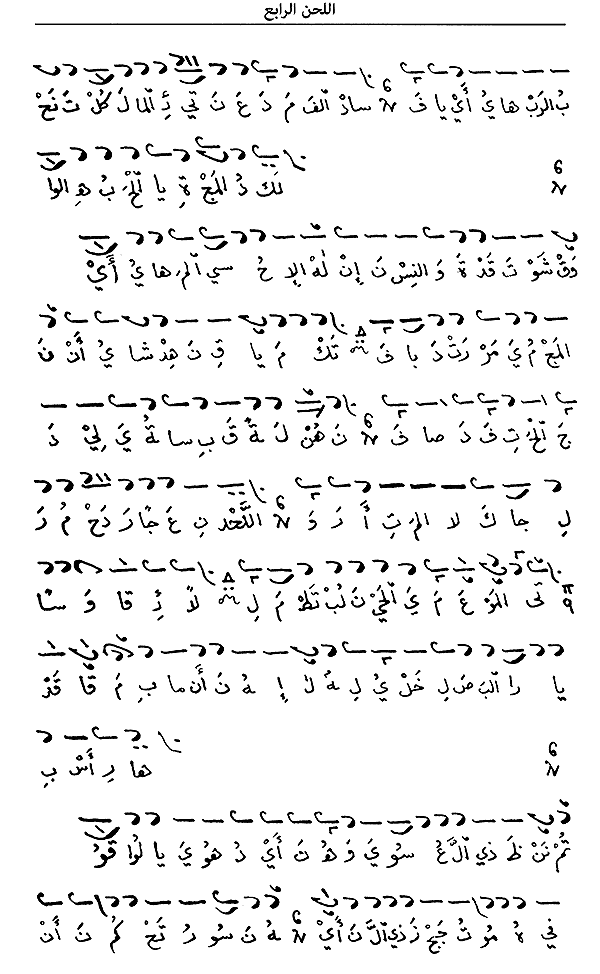 اللحن الرابع
بُ الرَبْ ها يُ أَيْ يا فَ سادْ الفَ مَ دَ عَ نَ تي ئِ الّما لَ كُلْ تَ نَحْ
لَكَ دُ المَجْ ةِ يا الْحَ بُ هِـ الوا
وَقْ شَوْ تَ قَدْ ةَ وَ النِسْ نَ إِنْ لَهْ الإِ حُ سي الْمَ ها يُ أَيْ
المَجْ مُ يَ مَرْ رَتْ دَ با ثَ تَكْ مَ يا قِ نَ هِدْ شا يُ أَنْ نَ
حَ الْحَ تِ فَ دَ صا فَ نَ هُنْ لَ ةً قَ بِ سا ةُ يَ لِيْ دَ
لِ جا كَ لا المَ تِ أَ رَ وَ اللَّحْدِ نِ عَ جًا رَ دَحْ مُ رَ
ةً تى المَوْ عَ مَ يَ الْحَيْ نَ لُبْ تَطْ مَ لِ لاً ئِ قا وَ سنا
يا را البَ ضَ لِ خَلْ يُ لِ هُ لٰ إِ هُ نَ أَن ما بِ مَ قا قَدْ
ها رِ أَسْ بِ
ثُمْ تَنْ ظَ ذي الَّ عُ سو يَ وَ هُ تَ أَيْ دُ هو يَ يا لوا قو
في هُ مو تُ جَجْ زَ ذي الَّ نَ أَيْ هُ نَ سو رُ تَحْ كُمْ نَ أَنْ